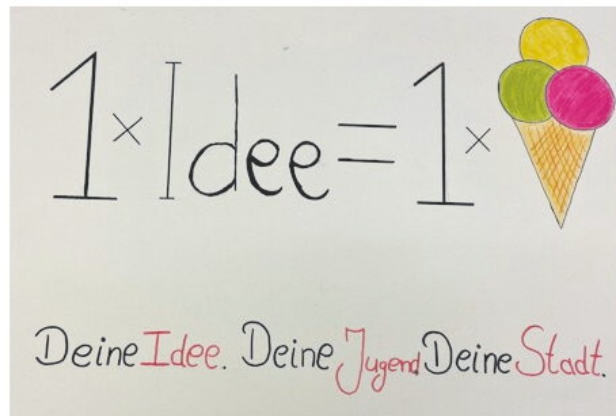 1 × Idee = 1 ×
Deine Idee. Deine Jugend Deine Stadt.